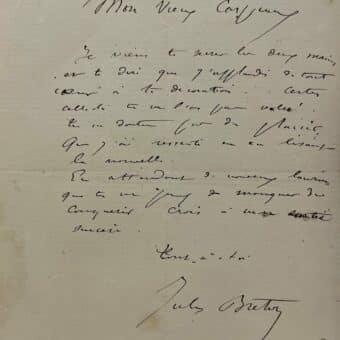 Mon Vieux
Je viens te serrer les deux mains
et te dire que j'applaudis de tout
cœur à ta décoration. Certes
celle là tu ne l'as pas volée!
tu ne doutes pas du plaisir
que j'ai ressenti en en lisant
la nouvelle.
En attendant de nouveaux lauriers
que tu ne peux manquer de
conquérir crois à
sincère.
Tout à toi
Jules Breton